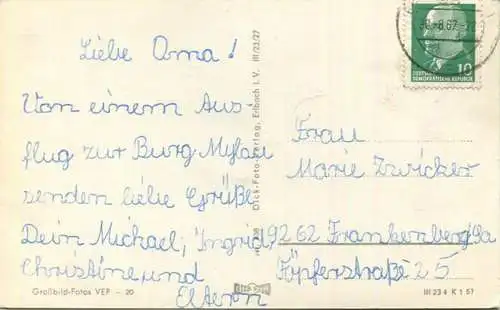 Liebe Oma!
Von einem Aus-
flug zur Burg Mylau
senden liebe Grüße
Dein Michael, Ingrid,
Christine, und
Eltern
Großbild-Fotos VEP – 20
Dick-Foto-Verlag, Erlbach i. V. III/23/27
10
DEUTSCHE
DEMOKRATISCHE REPUBLIK
Frau
Marie Zwicker
9262 Frankenberg/Sa
Töpferstraße 25
III 23 4 K 1 67